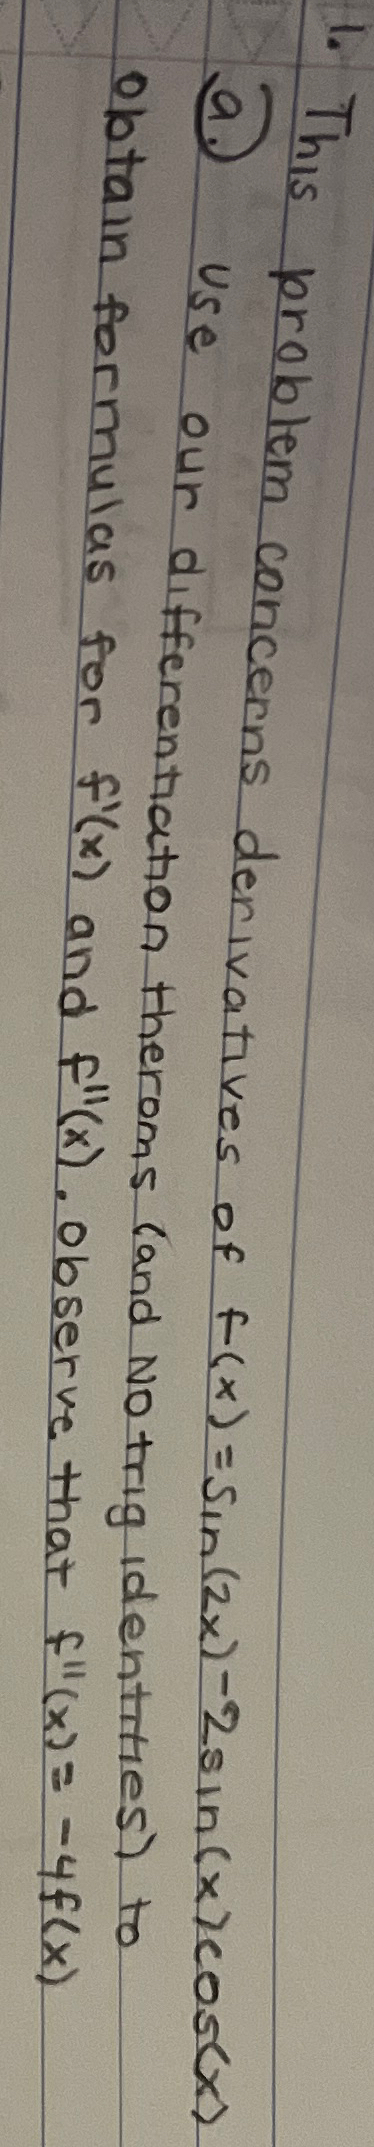 1. This problem concerns derivatives of f(x)=sin(2x)-2sin(x)cos(x)
a. Use our differentiation therom​s (and No trig identities) to
obtain formulas for f'(x) and f''(x). Observe that f''(x) = -4f(x)